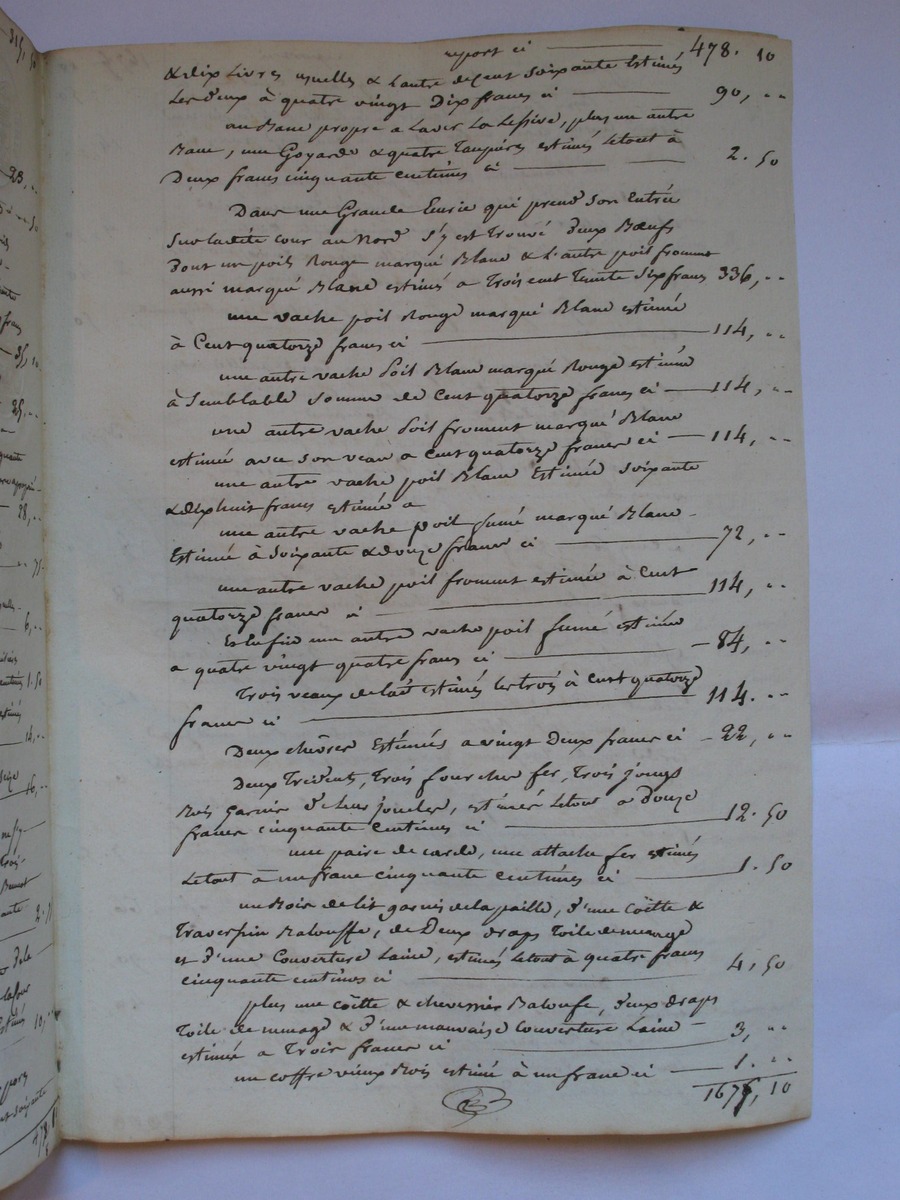 report ci 478. 10
& dix Livres usuelles & L'autre de Cent Soixante Estimés
Les deux à quatre vingt Dix francs ci 90, ..
un Banc propre a Laver La Lessive, plus un autre
Banc, une Goyarde & quatre Taupières estimés Letout à
Deux francs cinquante centimes ci 2. 50
Dans une Grande Ecurie qui prend Son Entrée
Sur ladite cour au Nord S'y est Trouvé deux Bœufs
dont un poil Rouge marqué Blanc & L'autre poil froment
aussi marqué Blanc estimés a Trois cent Trente Six francs 336, ..
une vache poil Rouge marqué Blanc estimée
à Cent quatorze francs ci 114, ..
une autre vache Poil Blanc marqué Rouge estimée
à Semblable Somme de Cent quatorze francs ci 114, ..
une autre vache Poil froment marqué Blanc
estimée avec Son veau a Cent quatorze francs ci 114, ..
une autre vache poil Blanc Estimée Soixante
& dixhuit francs estimée a
une autre vache poil fumé marqué Blanc
Estimée à Soixante & douze francs ci 72, ..
une autre vache poil froment estimée à Cent
quatorze francs ci 114, ..
Et Enfin une autre vache poil fumé estimée
a quatre vingt quatre francs ci 84, ..
Trois veaux de lait estimés Les trois à Cent quatorze
francs ci 114. ..
Deux chèvres Estimées a vingt Deux francs ci 22, ..
Deux Tridents, Trois fourches fer, Trois jougs
Bois garnis de leur joucles, estimés Letout a Douze
francs cinquante Centimes ci 12. 50
une paire de carde, une attache fer estimés
Letout à un franc cinquante centimes ci 1. 50
un Bois de lit garnis de la paille, d'une Coëtte &
Traversin Balouffe, de Deux draps Toile de menage
et d'une Couverture Laine, estimés Letout à quatre francs
cinquante centimes ci 4, 50
plus une Coëtte & chevessier Baloufe, deux draps
Toile de menage & d'une mauvaise Couverture Laine
estimée a Trois francs ci 3, ..
un coffre vieux Bois estimé à un franc ci 1. ..
167, 10